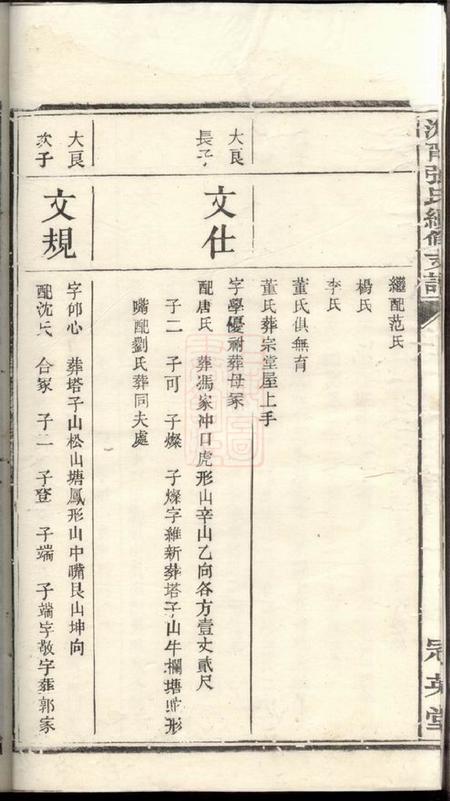 張氏續修支譜
冠英堂
繼配范氏
楊氏
李氏
董氏俱無育
董氏葬宗堂屋上手
大良長子
文仕
字學優祔葬母冢
配唐氏 葬馮家冲口虎形山辛山乙向各方壹丈貳尺
子二 子可 子燦 子燦字維新葬塔子山牛欄塘蛇形
嘴配劉氏葬同夫處
大良次子
文規
字仰心 葬塔子山松山塘鳳形山中嘴艮山坤向
配沈氏 合冢 子二 子登 子端 子端字敬字葬郭家